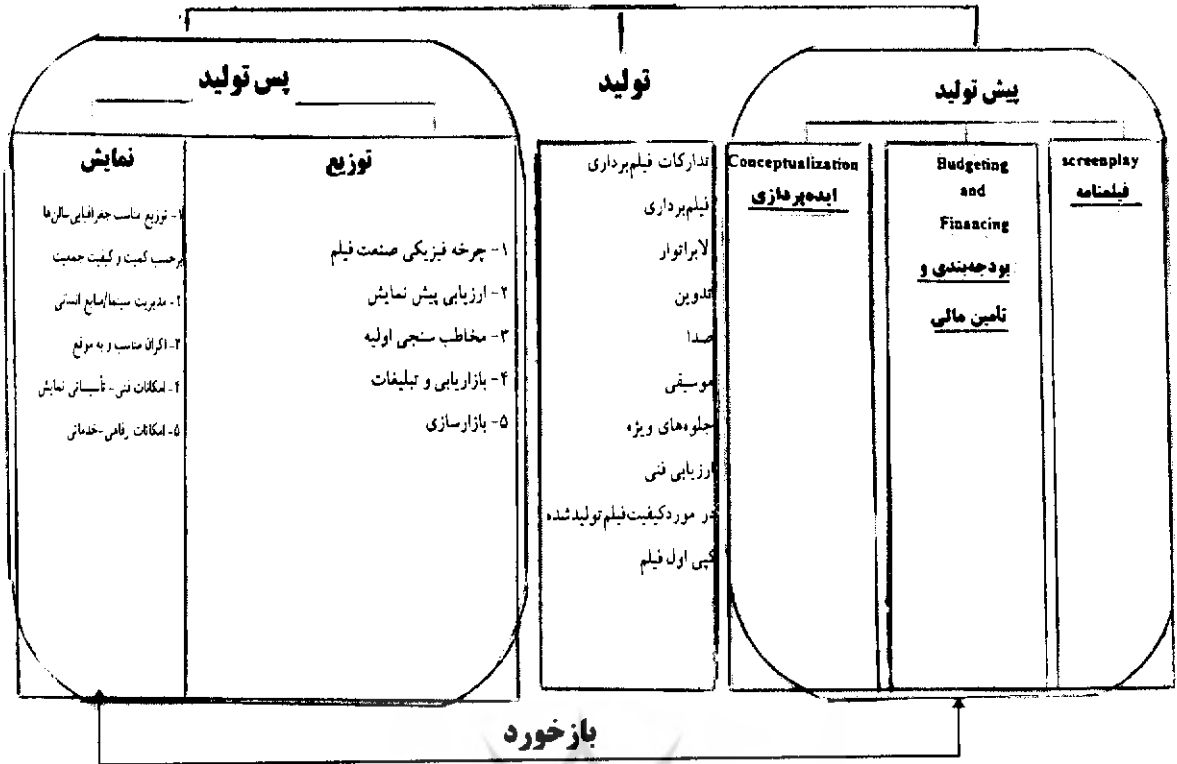 پیش تولید
screenplay
فیلمنامه
Budgeting
and
Financing
بودجه‌بندی و
تأمین مالی
Conceptualization
ایده‌پردازی
تولید
تدارکات فیلم‌برداری
فیلم‌برداری
لابراتوار
تدوین
صدا
موسیقی
جلوه‌های ویژه
ارزیابی فنی
در مورد کیفیت فیلم تولید شده
کپی اول فیلم
پس تولید
توزیع
۱- چرخه فیزیکی صنعت فیلم
۲- ارزیابی پیش نمایش
۳- مخاطب سنجی اولیه
۴- بازاریابی و تبلیغات
۵- بازارسازی
نمایش
۱- توزیع مناسب جغرافیایی سالن‌ها
برحسب کمیت و کیفیت جمعیت
۲- مدیریت سینما/منابع انسانی
۳- اکران مناسب و به موقع
۴- امکانات فنی - تأسیساتی نمایش
۵- امکانات رفاهی-خدماتی
بازخورد